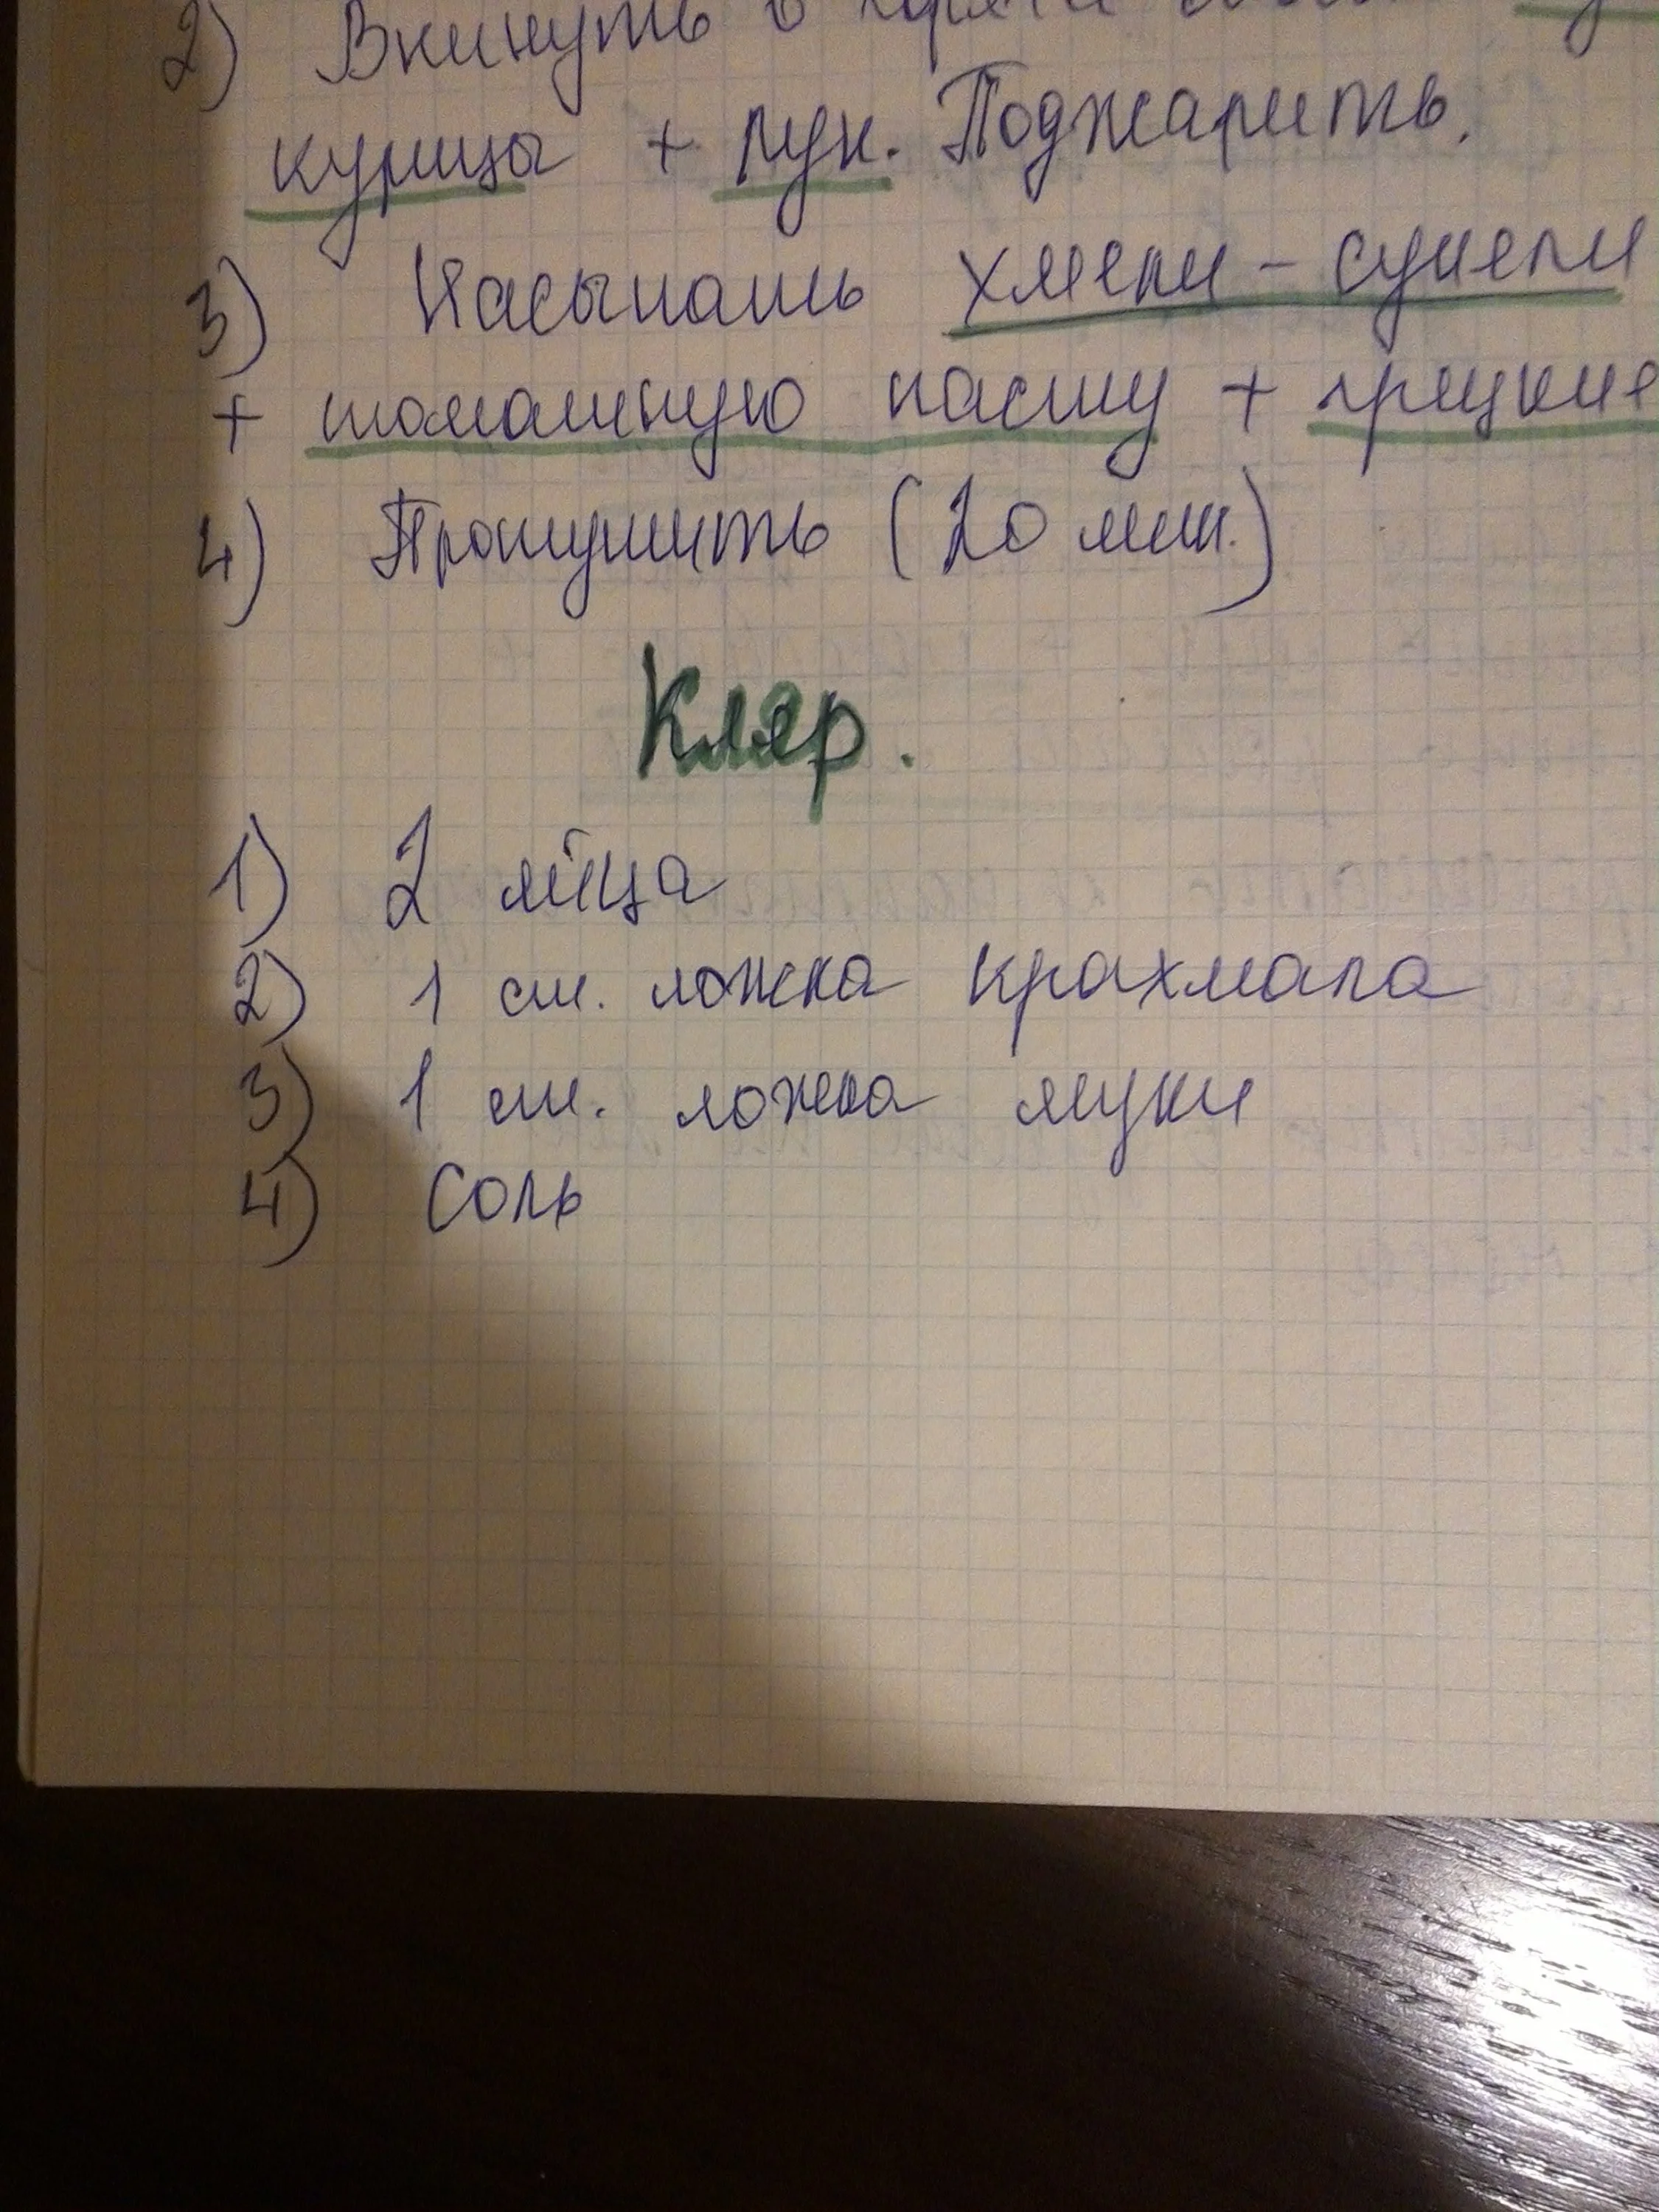 2) Вкинуть в
курицы + лук. Поджарить.
3) Насыпать хмели-сунели
+ томатную пасту + грецкие
4) Протушить (20 мин.)
Кляр.
1) 2 яйца
2) 1 ст. ложка крахмала
3) 1 ст. ложка муки
4) Соль